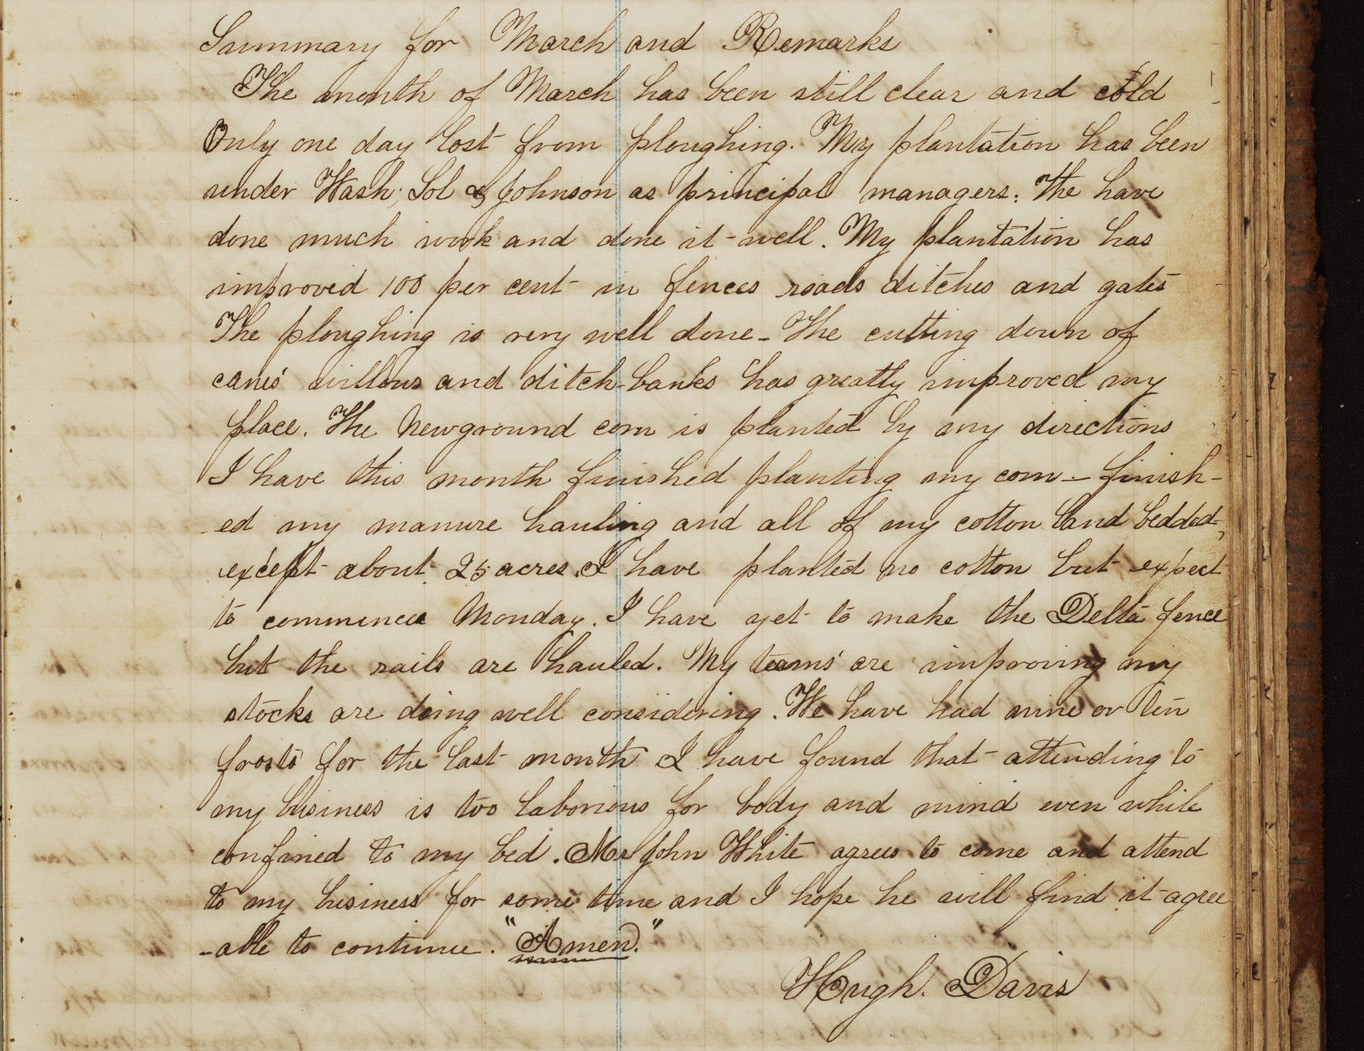 Summary for March and Remarks
The month of March has been still clear and cold
Only one day lost from ploughing. My plantation has been
under Wash, Sol & Johnson as principal managers. The have
done much work and done it well. My plantation has
improved 100 per cent in fences roads ditches and gates
The ploughing is very well done - The cutting down of
canes willows and ditch-banks has greatly improved my
place. The Newground corn is planted by my directions
I have this month finished planting my corn - finish-
-ed my manure hauling and all of my cotton land bedded,
except about 25 acres. I have planted no cotton but expect
to commence Monday. I have yet to make the Delta fence
but the rails are hauled. My teams are improving my
stocks are doing well considering. We have had nine or ten
frosts for the last month I have found that attending to
my business is too laborious for body and mind even while
confined to my bed. Mr John White agrees to come and attend
to my bisiness for some time and I hope he will find it agree
-able to continue. "Amen."
Hugh. Davis